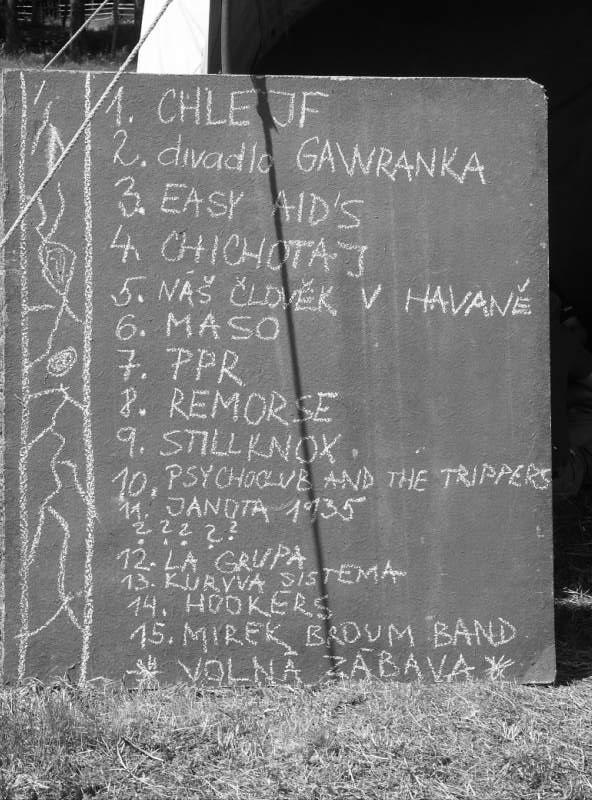 1. CHLEJF
2. divadlo GAWRANKA
3. EASY AID'S
4. CHICHOTAJ
5. NÁŠ ČLOVĚK V HAVANĚ
6. MASO
7. PPR
8. REMORSE
9. STILLKNOX
10. PSYCHOCLUB AND THE TRIPPERS
11. JANOTA 1935
? ? ? ? ?
12. LA GRUPA
13. KURVVA SISTEMA
14. HOOKERS
15. MIREK BROUM BAND
* VOLNÁ ZÁBAVA *